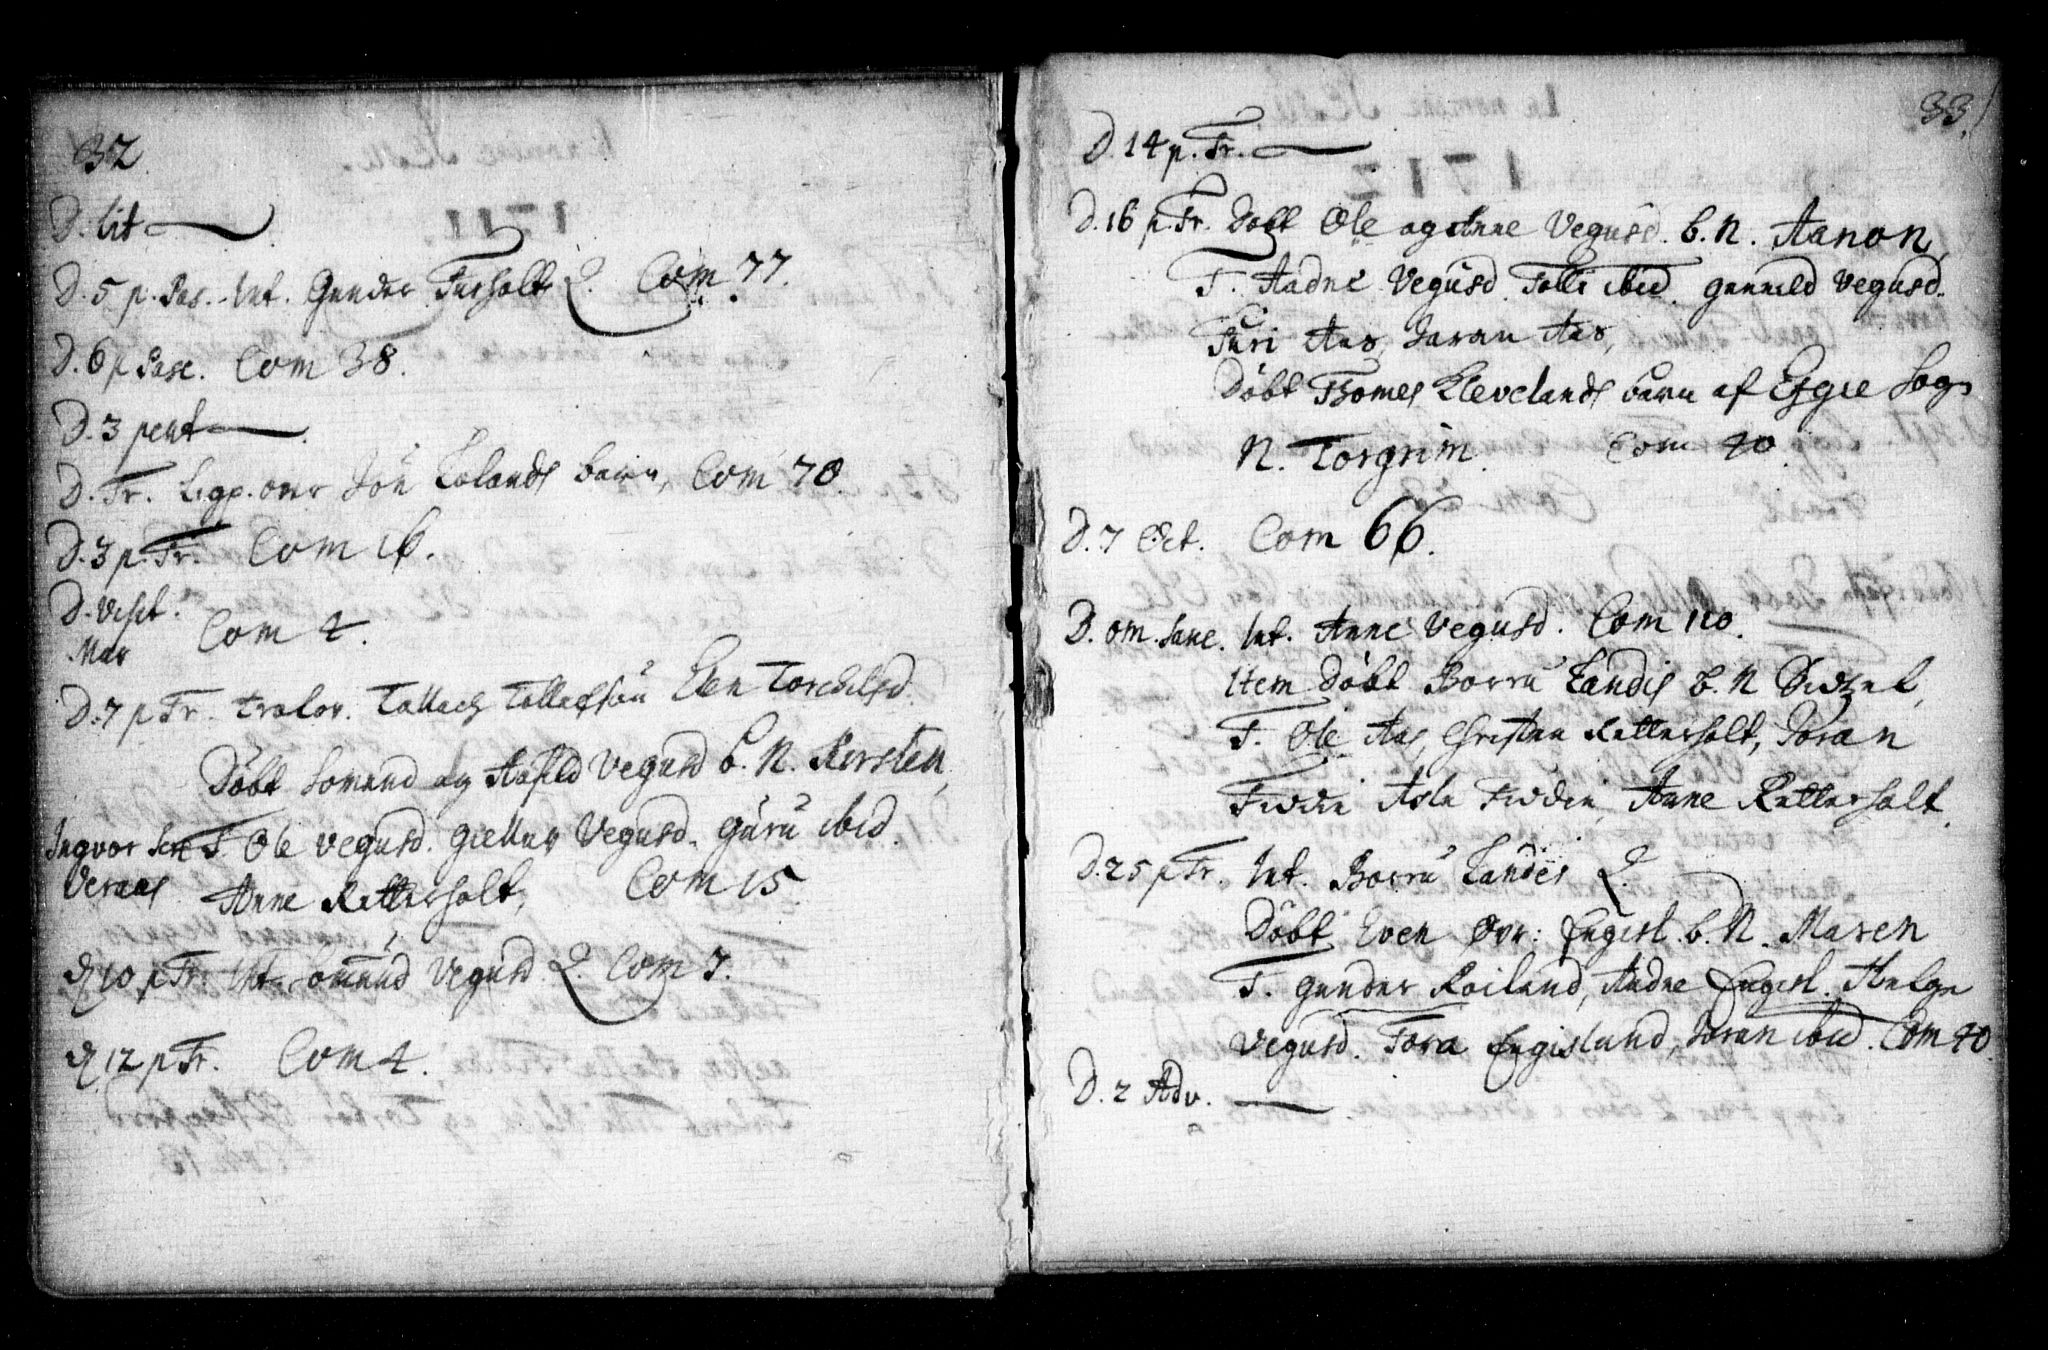 32.
D. lit
D. 5 p. Pas. Int. Gunder Furholt Q. Com 77.
D. 6 p Pasc. Com 38.
D. 3 pent
D. Tr. Ligp. over Jon barn, Com 70.
D. 3 p. Tr. Com 16.
D. Visit.
Mar Com 4.
D. 7 p Tr. trolov. Tallach Tallachsøn Elen Torchilsd.
Døbt Somund og Aasild Vegusd b. N. Kirsten,
Ingvor F. Ole Vegusd. Giellur Vegusd. Guru ibid.
Veraas Anne Retterholt, Com 15.
D 10 p Tr. Int. Somund Vegusd Q. Com 7.
D 12 p Tr. Com 4.
33.
D. 14 p. Tr.
D. 16 p. Tr. Døbt Ole og Anne Vegusd. b. N. Aanon,
F. Aadne Vegusd. Folli ibid. Gunnild Vegusd.
Turi Aas, Joran Aas,
Døbt Thomes Klevelands barn af Sogn
N. Torgrim. Com 40.
D. 7 Oct. Com 66.
D. om. Sanc. Int. Anne Vegusd. Com 110.
Item Døbt Borru Landis b. N Sidzel,
F. Ole Aas, Christen Retterholt, Joran
Fidie Asle Fidie, Anne Retterholt.
D. 25 p Tr. Int. Borru Landis Q.
Døbt Even Øvr: Engisl. b. N. Maren
F. Gunder Roiland, Aadne Engisl. Helge
Vegusd. Tora Engislund, Joran ibid. Com 40.
D. 2 Adv.